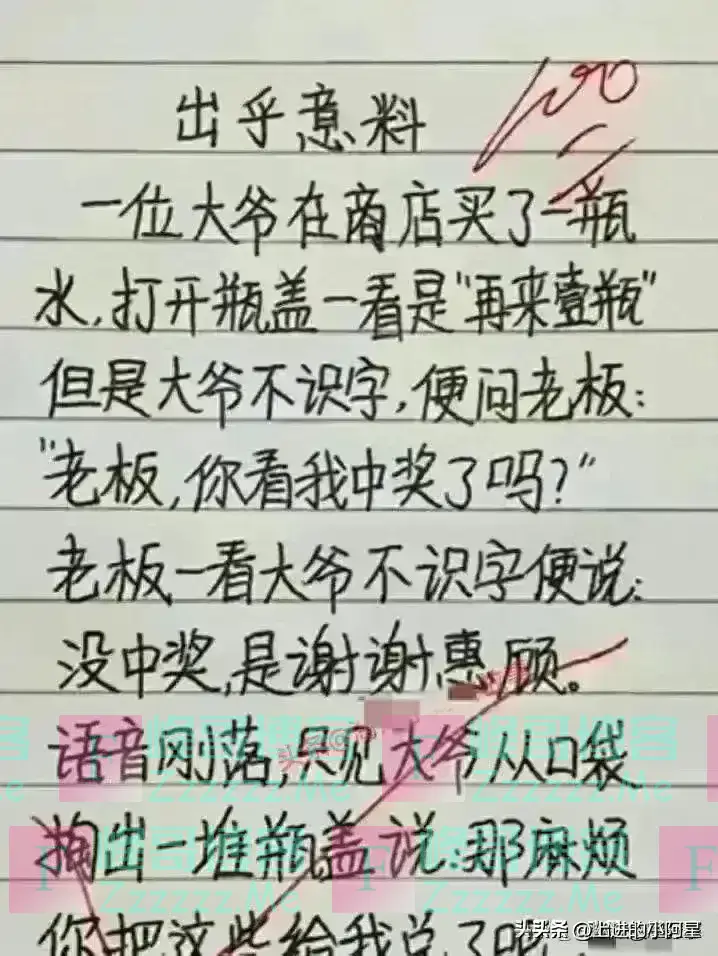 100
出乎意料
一位大爷在商店买了一瓶
水,打开瓶盖一看是"再来壹瓶"
但是大爷不识字,便问老板:
"老板,你看我中奖了吗?"
老板一看大爷不识字便说:
没中奖,是谢谢惠顾。
语音刚落,只见大爷从口袋
掏出一堆瓶盖说:那麻烦
你把这些给我兑了吧
Zzzzzz.Me
Zzzzzz.Me
Zzzzzz.Me
F
F
F
Zzzzzz.Me
Zzzzzz.Me
头条 @上进的小阿星